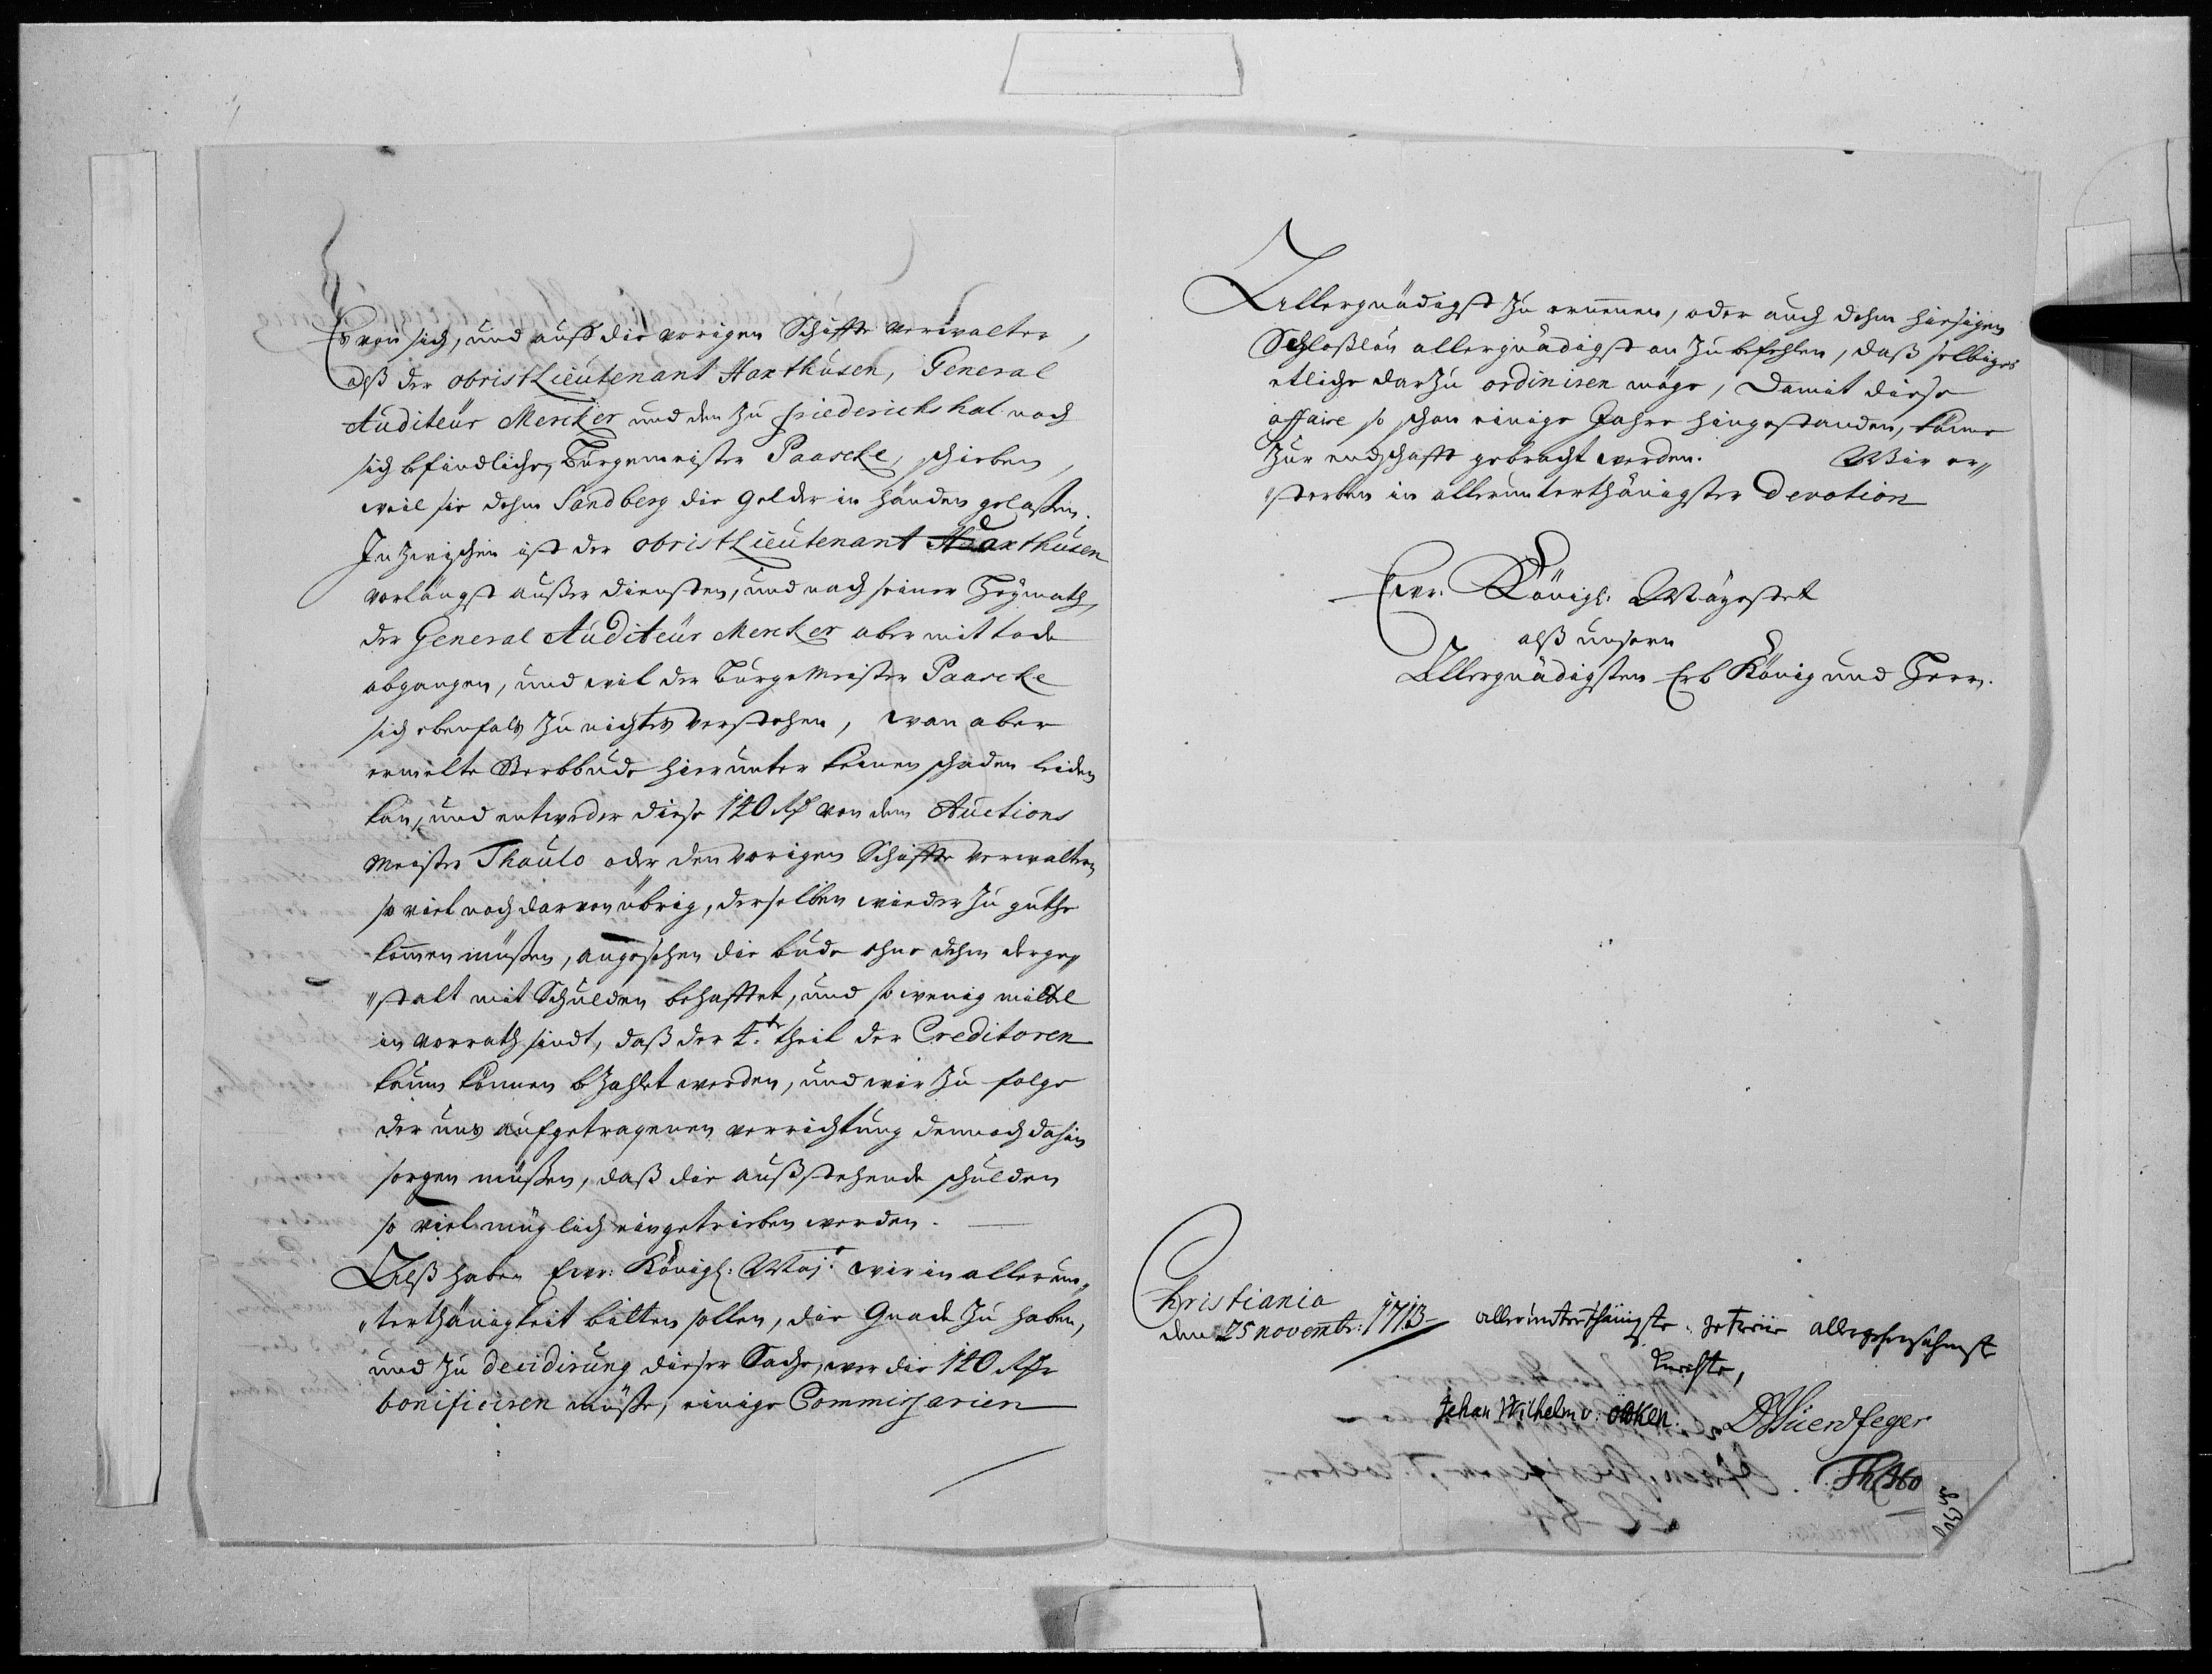 Es von sich, und auff die vorigen Schiffts verwalter,
alß der obristLieutenant Haxthusen, General
Auditeur Mercker und den zu friederichshal noch
sich befindlichen Bürgemeister Paascke, schieben,
weil sie dehm Sandberg die gelder in händen gelaßen.
Inzwischen ist der obristLieutenant Haxthusen
vorlängst außer diensten, und nach seiner Heÿmath,
der General Auditeur Mercker aber mit tode
abgangen, und wil der BurgeMeister Paascke
sich ebenfals zu nichts verstehen, wan aber
ermelte Sterbbude hierunter keinen schaden leiden
kan, und entweder diese 140 Rß von dem Auctions
Meister Thaulo oder den vorigen Schiffts verwaltern
so viel noch darvon übrig, derselben wieder zu guthe
kom̃en müßen, angesehen die bude ohne dehm derge„
„stalt mit Schulden behafftet, und so wenig mittel
in vorrath sindt, daß der 4.te theil der Creditoren
kaum können bezahlet werden, und wir zu folge
der uns aufgetragenen verrichtung dennoch dahin
sorgen müßen, daß die außstehende schulden
so viel müglich eingetrieben werden.
Alß haben Ewr: Königl: Maj.t wir in allerun„
„terthänigkeit bitten sollen, die Gnade zu haben,
und zu decidirung dieser Sache, wer die 140 Rßr
bonificiren müße, einige Commissarien
Allergnädigst zu ernennen, oder auch dehm hiesigen
Schloßlöv allergnädigst an zu befehlen, daß selbiges
etliche darzu ordiniren möge, Damit diese
affaire so schon einige Jahre hingestanden, könne
zur endschafft gebracht werden. Wir er„
„sterben in allerunterthänigster Devotion
Ewr. Königl: Mayestet
alß unsern
Allergnädigsten Erb König und Herrn.
Christiania
den 25 novembr: 1713
allerunterthänigste getreüe allergehorsahmste
knechte,
Johan Wilhelm v: ötken. Wüerdfeger